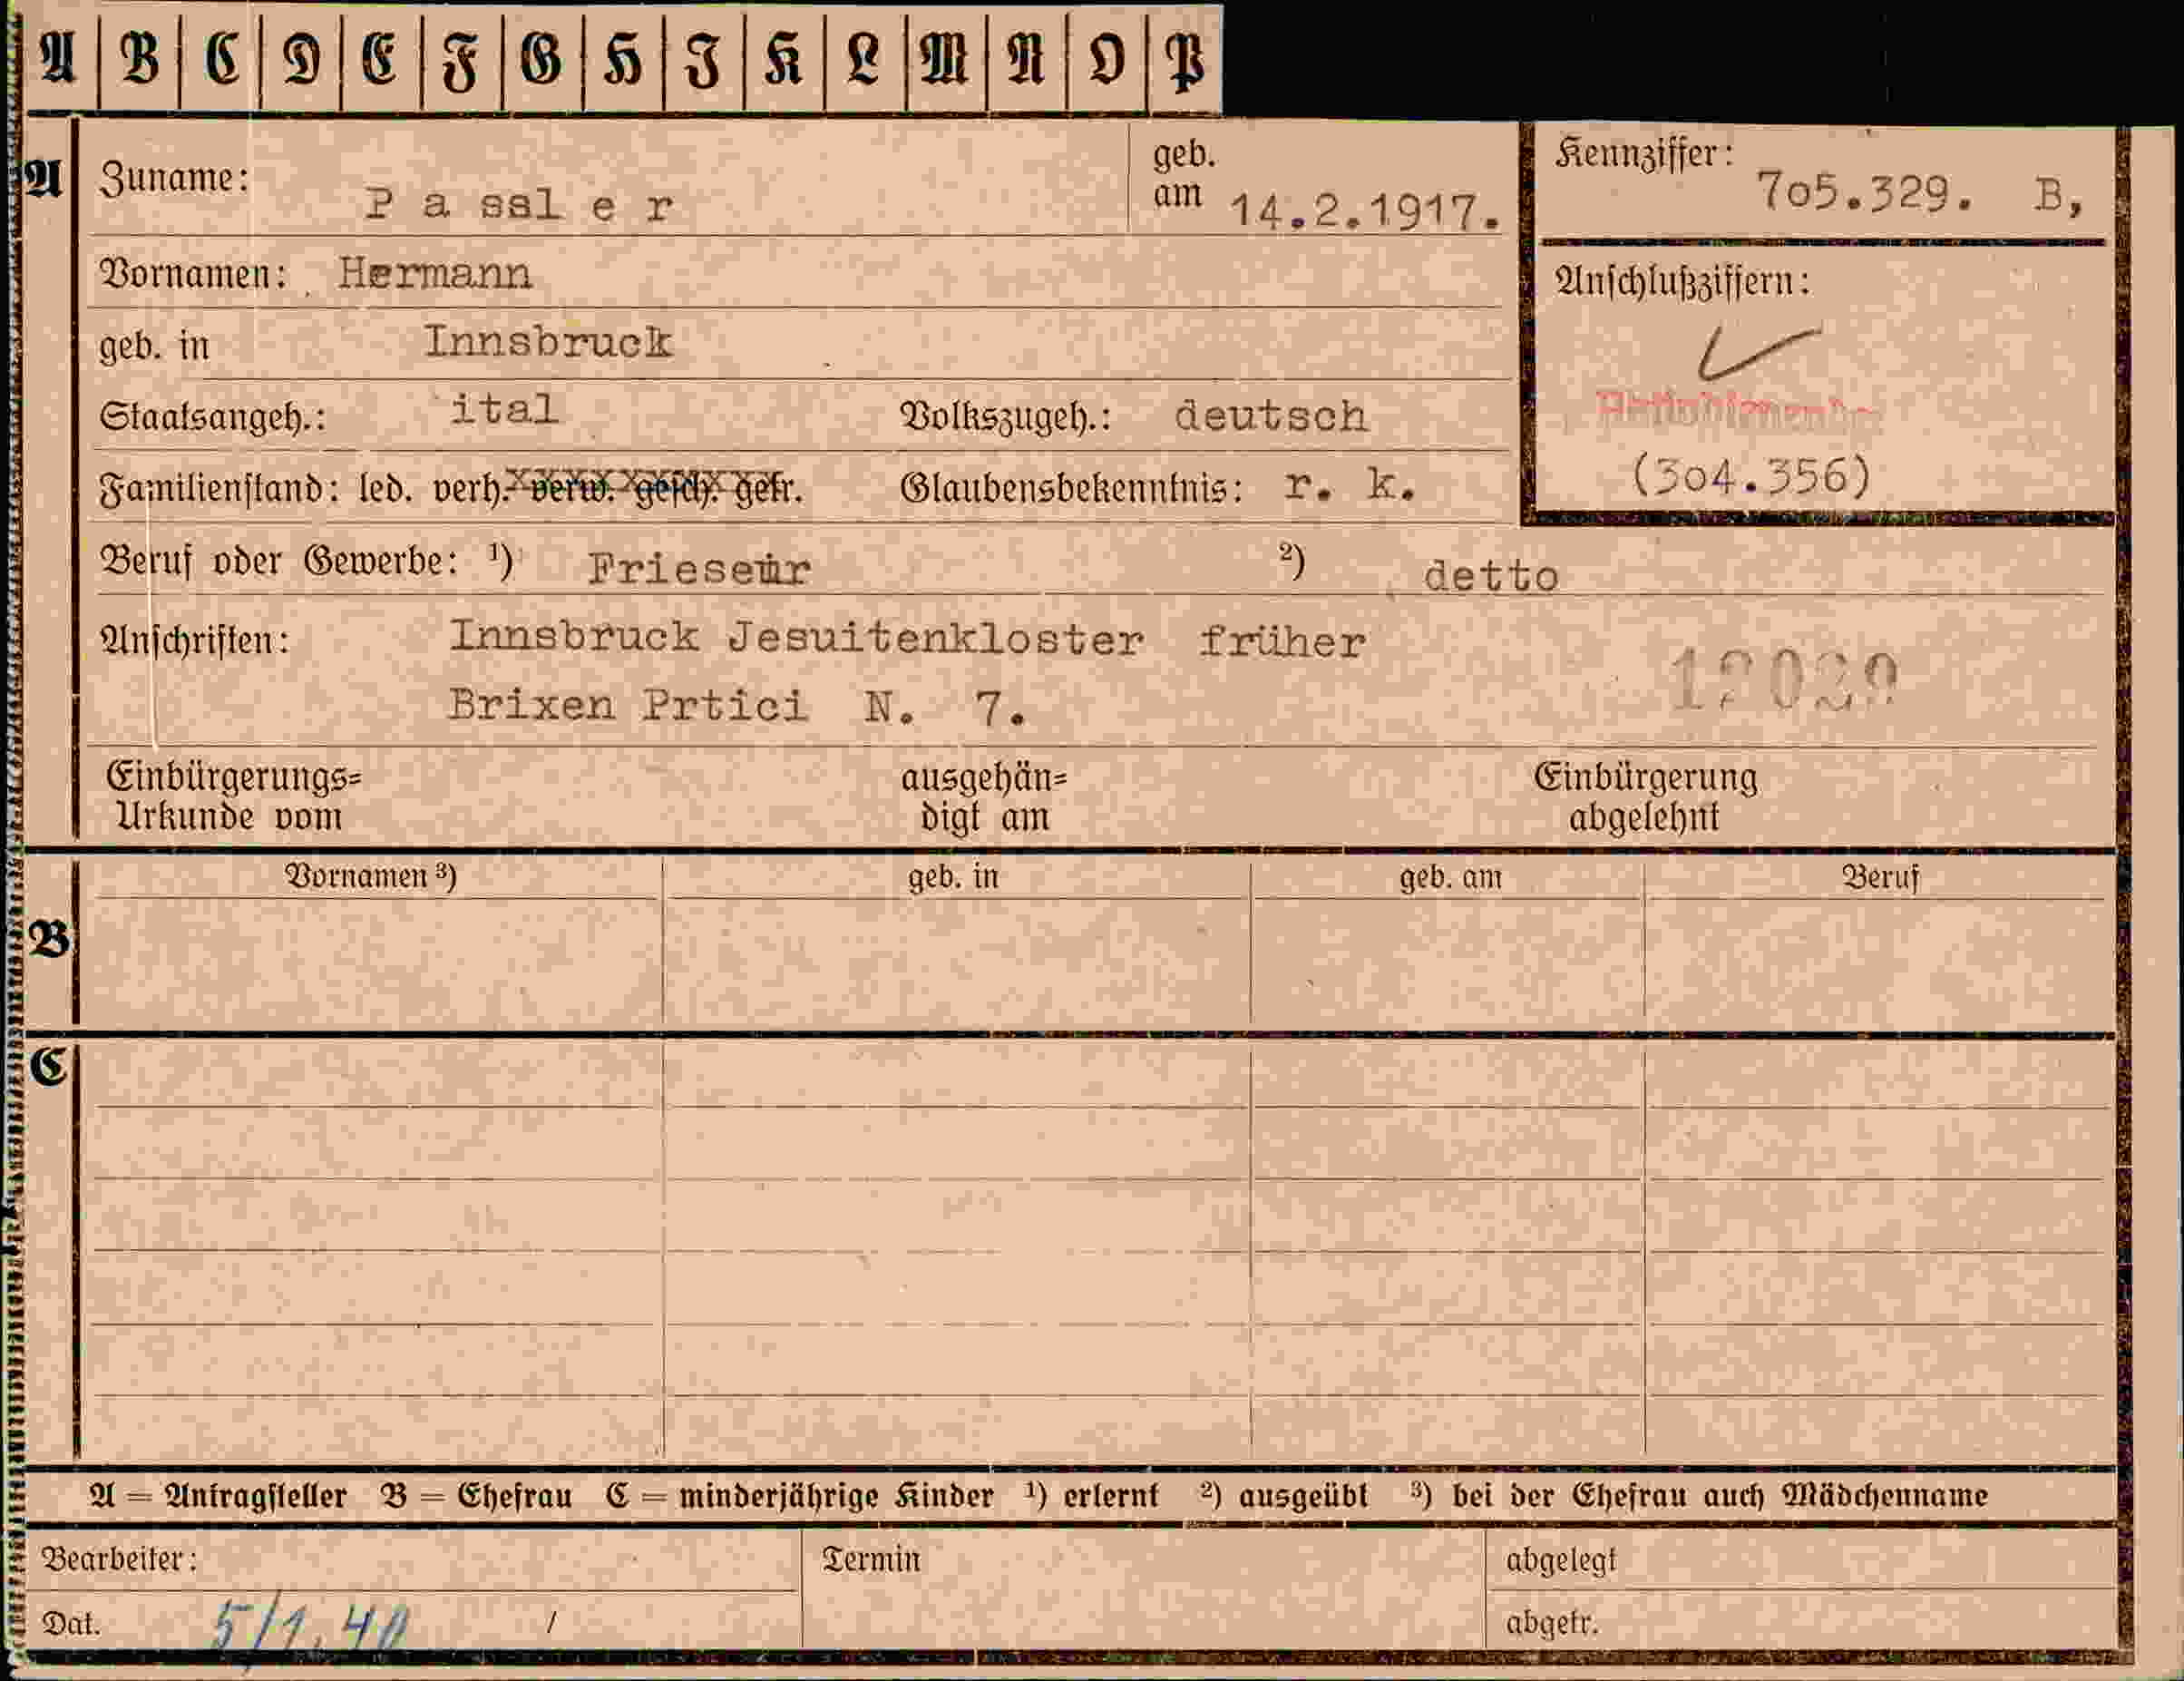 A B C D E F G H I K L M N O P
A Zuname: P a ssl e r geb. am 14.2.1917. Kennziffer: 7o5.329. B,
Vornamen: Hermann
Anschlußziffern:
geb. in Innsbruck
Staatsangeh.: ital Volkszugeh.: deutsch
Familienstand: led. verh. verw. gesch. getr. Glaubensbekenntnis: r. k.
(3o4.356)
Beruf oder Gewerbe: ¹) ²) detto
Anschriften: Innsbruck Jesuitenkloster früher
Brixen Prtici N. 7.
Einbürgerungs=
Urkunde vom
ausgehän=
digt am
Einbürgerung
abgelehnt
B Vornamen ³) geb. in geb. am Beruf
C
A = Antragsteller B = Ehefrau C = minderjährige Kinder ¹) erlernt ²) ausgeübt ³) bei der Ehefrau auch Mädchenname
Bearbeiter: Termin abgelegt
Dat. 5/1.40 / abgetr.